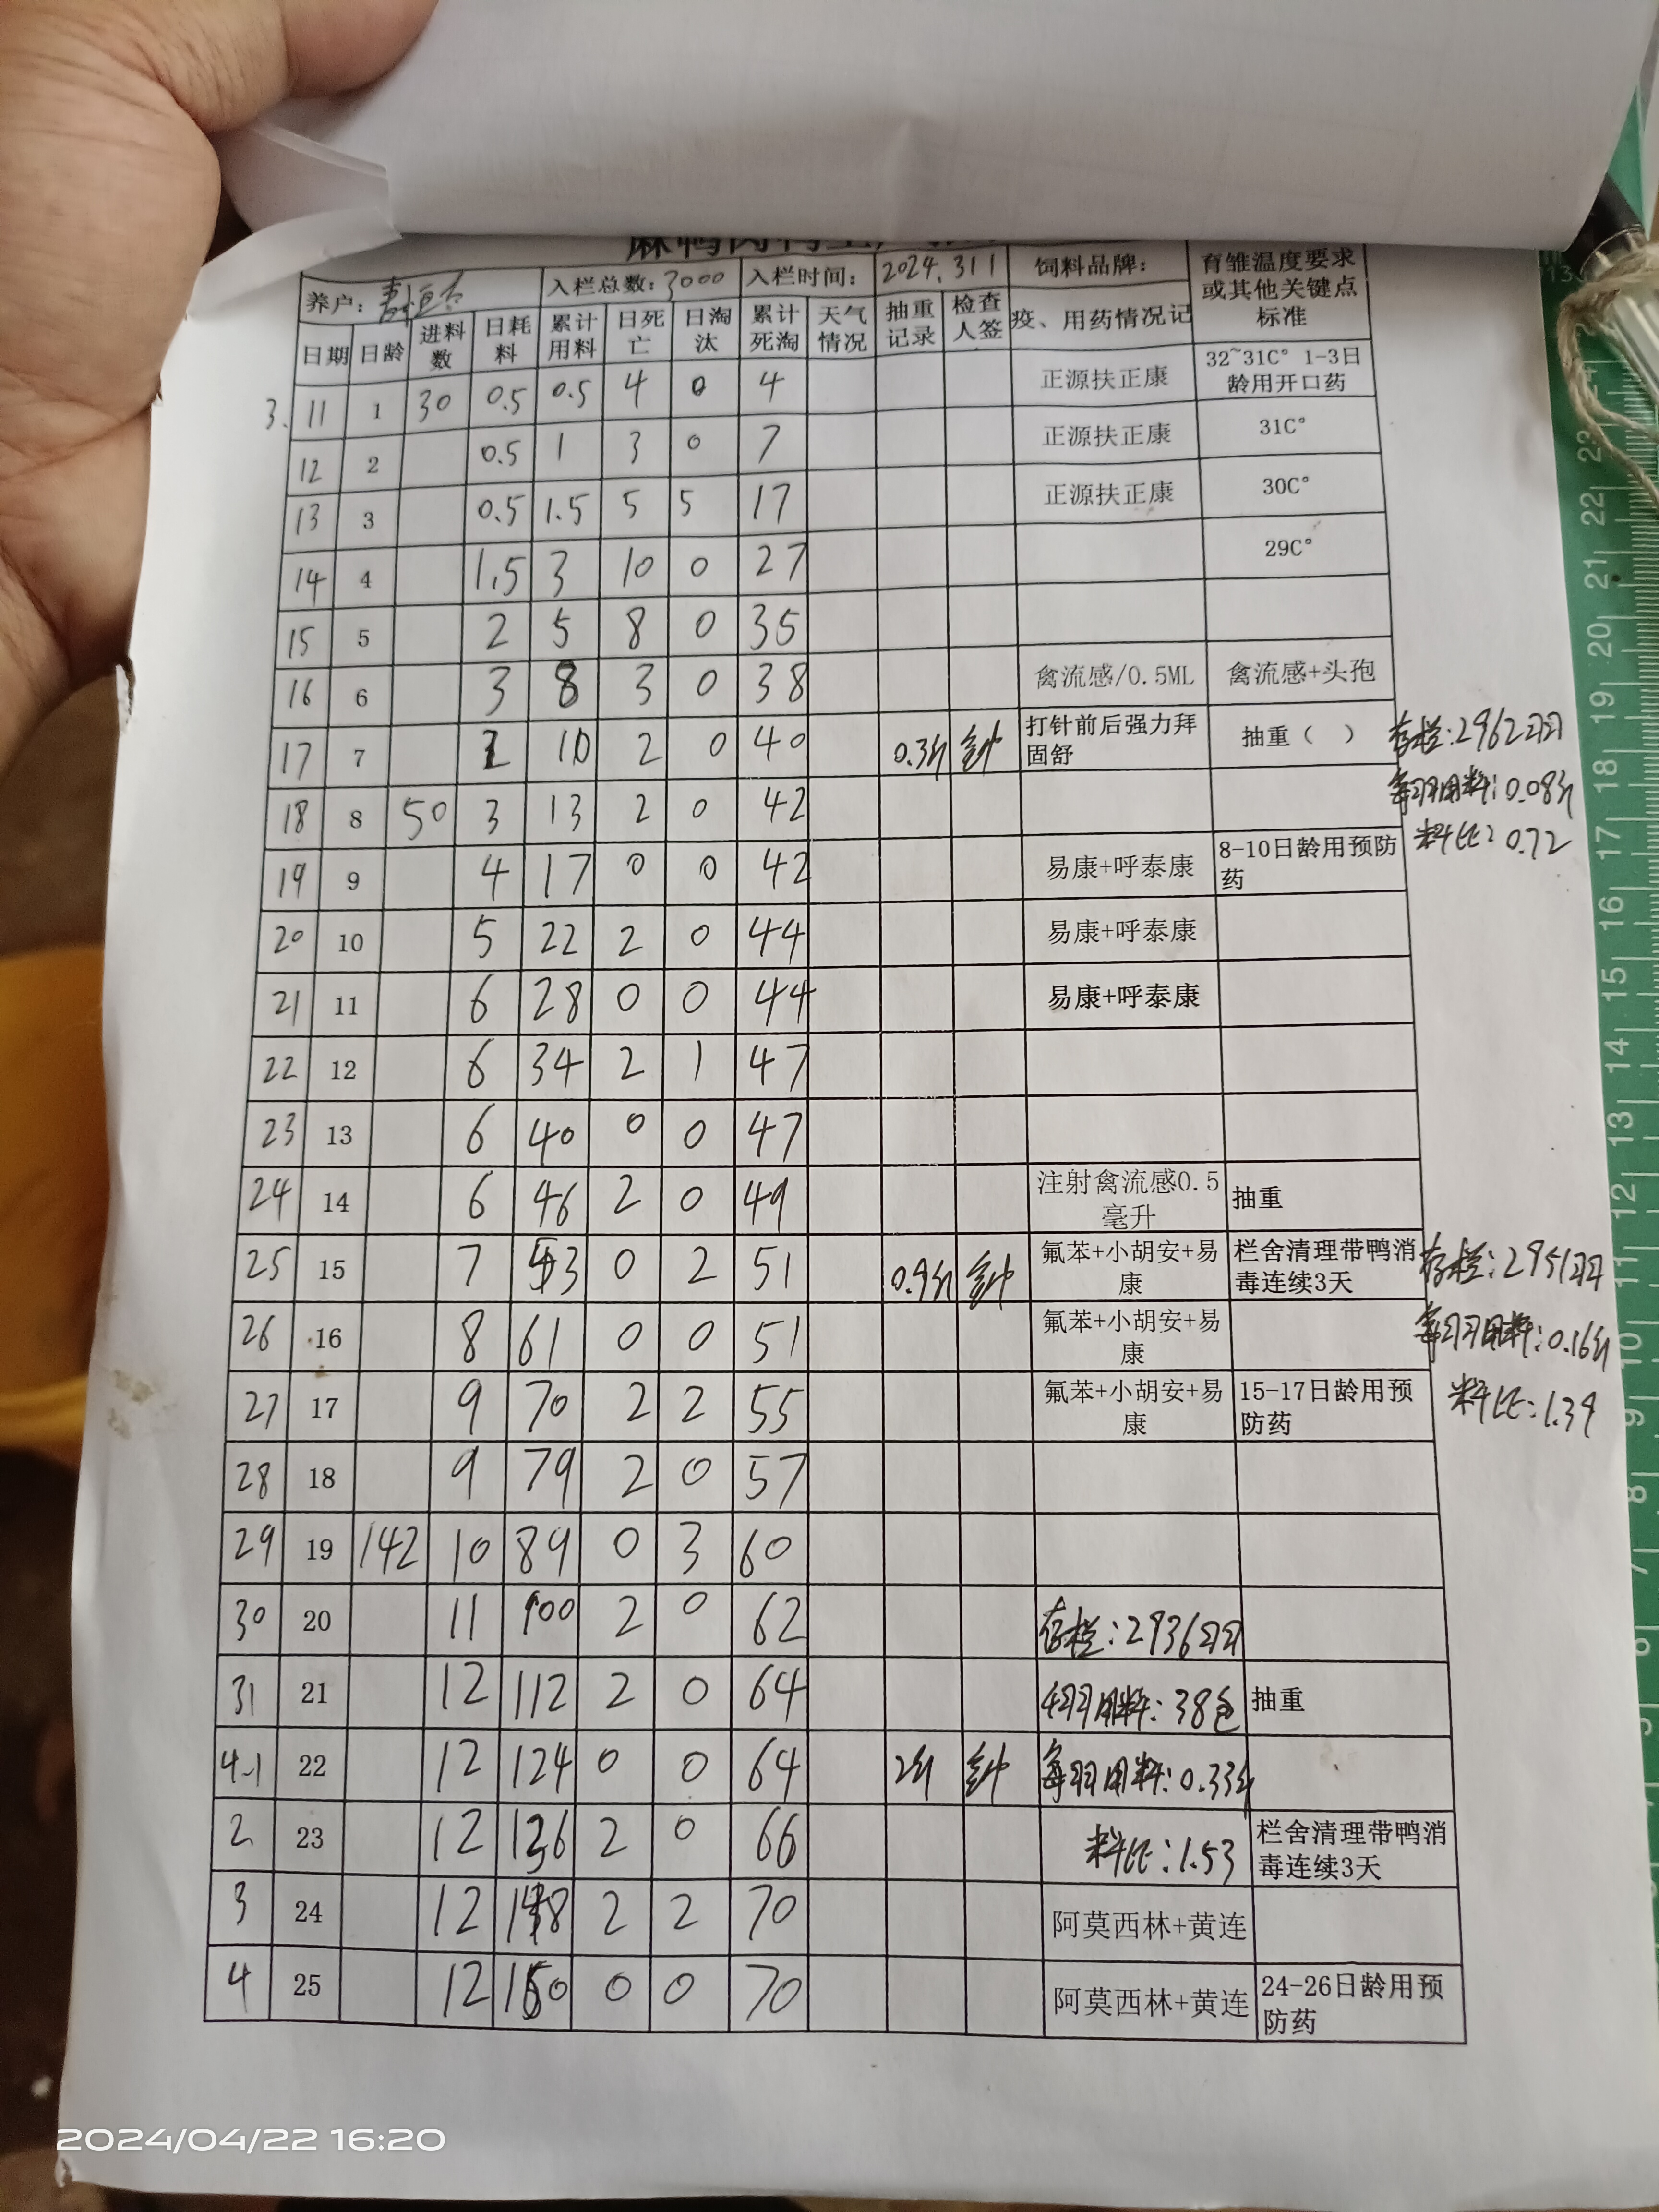 养户： 入栏总数：3000 入栏时间： 2024.311 饲料品牌： 育雏温度要求或其他关键点标准
日期 日龄 进料数 日耗料 累计用料 日死亡 日淘汰 累计死淘 天气情况 抽重记录 检查人签 疫、用药情况记
3.11 1 30 0.5 0.5 4 0 4 正源扶正康 32~31C° 1-3日龄用开口药
12 2 0.5 1 3 0 7 正源扶正康 31C°
13 3 0.5 1.5 5 5 17 正源扶正康 30C°
14 4 1.5 3 10 0 27 29C°
15 5 2 5 8 0 35
16 6 3 8 3 0 38 禽流感/0.5ML 禽流感+头孢
17 7 2 10 2 0 40 0.3斤 打针前后强力拜固舒 抽重（ ） 存栏：2962羽
每羽用料：0.08斤
18 8 50 3 13 2 0 42
料比：0.72
19 9 4 17 0 0 42 易康+呼泰康 8-10日龄用预防药
20 10 5 22 2 0 44 易康+呼泰康
21 11 6 28 0 0 44 易康+呼泰康
22 12 6 34 2 1 47
23 13 6 40 0 0 47
24 14 6 46 2 0 49 注射禽流感0.5毫升 抽重
25 15 7 53 0 2 51 0.9斤 氟苯+小胡安+易康 栏舍清理带鸭消毒连续3天 存栏：2951羽
26 16 8 61 0 0 51 氟苯+小胡安+易康 每羽用料：0.16斤
27 17 9 70 2 2 55 氟苯+小胡安+易康 15-17日龄用预防药 料比：1.34
28 18 9 79 2 0 57
29 19 142 10 89 0 3 60
30 20 11 100 2 0 62 存栏：2936羽
31 21 12 112 2 0 64 用料：38包 抽重
4-1 22 12 124 0 0 64 2斤 每羽用料：0.33斤
2 23 12 136 2 0 66 料比：1.53 栏舍清理带鸭消毒连续3天
3 24 12 148 2 2 70 阿莫西林+黄连
4 25 12 160 0 0 70 阿莫西林+黄连 24-26日龄用预防药
2024/04/22 16:20
13 24 23 22 21 20 19 18 17 16 15 14 13 12 11 10 9 8 7 6